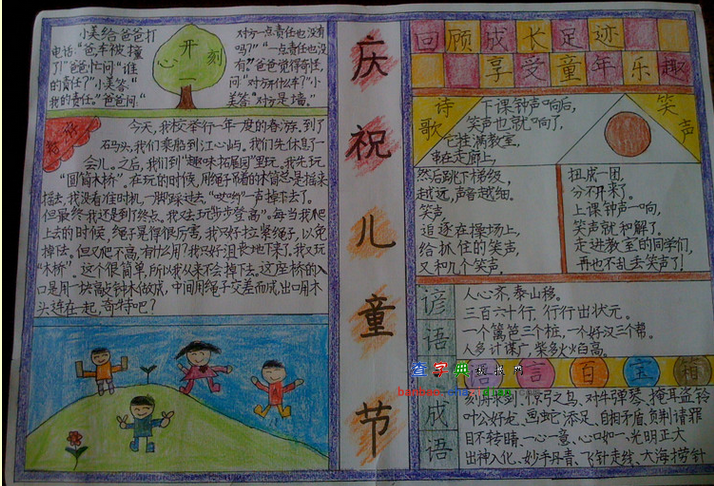 小美给爸爸打
电话:“爸车被撞
了!”爸爸忙问“谁
的责任?”小美答:“
我的责任。”爸爸问:“
开
心 刻
一
对方一点责任也没有
吗?”“一点责任也没
有!”爸爸觉得奇怪,
问“对方干什么?”小美
答“对方是墙。”
今天,我校举行一年一度的春游。到了
石马头,我们乘船到江心屿。我们先休息了一
会儿。之后,我们到“趣味拓展园”里玩。我先玩
“圆筒木桥”。在玩的时候,用绳子吊着的木筒总是摇来
摇去,我没看准时机,一脚踩过去,“哎哟”一声掉下去了。
但最终我还是到了终点。我又去玩步步登高”。每当我爬
上去的时候,绳子晃得很厉害,我只好拉紧绳子,以免
掉下去。但又爬不高,有什么用?我只好沮丧地下来了。我又玩
“木桥”。这个很简单,所以我从来不会掉下去。这座桥的入
口是用一块敲钟木做成,中间用绳子交差而成,出口用木
头连在一起,奇特吧?
庆
祝
儿
童
节
回顾成长足迹
享受童年乐趣
诗
歌
笑
声
下课钟声响后,
笑声也就响了,
它挂满教室,
串在走廊上,
然后跳下梯级,
越远,声音越细。
笑声,
追逐在操场上,
给抓住的笑声,
又和几个笑声,
扭成一团,
分不开来了。
上课钟声一响,
笑声就和解了。
走进教室的同学们,
再也不乱丢笑声了!
谚
语
人心齐,泰山移。
三百六十行,行行出状元。
一个篱笆三个桩,一个好汉三个帮。
人多计谋广,柴多火焰高。
语言百宝箱
查字典
成
语
刻舟求剑、惊弓之鸟、对牛弹琴、掩耳盗铃
叶公好龙、画蛇添足、自相矛盾、负荆请罪
目不转睛、一心一意、心口如一、光明正大
出神入化、妙手丹青、飞针走线、大海捞针